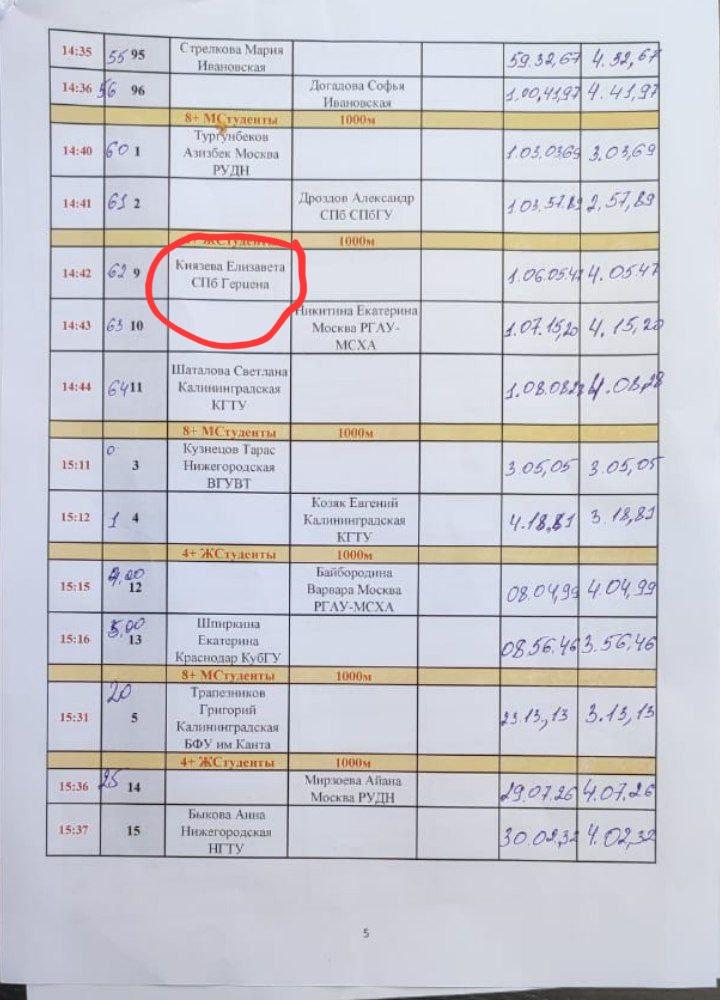 14:35 55 95 Стрелкова Мария 59.32,67 4.32,67
Ивановская
14:36 56 96 Догадова Софья 1.00,41,97 4.41,97
Ивановская
8+ МСтуденты 1000м
14:40 60 1 Тургунбеков 1.03.03,69 3.03,69
Азизбек Москва
РУДН
14:41 61 2 Дроздов Александр 1.03.57.89 2.57,89
СПб СПбГУ
ЖСтуденты 1000м
14:42 62 9 Князева Елизавета 1.06.05,47 4.05,47
СПб Герцена
14:43 63 10 Никитина Екатерина 1.07.15,20 4.15,20
Москва РГАУ-
МСХА
14:44 64 11 Шаталова Светлана 1.08.08,28 4.08,28
Калининградская
КГТУ
8+ МСтуденты 1000м
15:11 0 3 Кузнецов Тарас 3.05,05 3.05,05
Нижегородская
ВГУВТ
15:12 1 4 Козяк Евгений 4.18,81 3.18,81
Калининградская
КГТУ
4+ ЖСтуденты 1000м
15:15 4.00 12 Байбородина 08.04,99 4.04,99
Варвара Москва
РГАУ-МСХА
15:16 5.00 13 Шпиркина 08.56.46 3.56,46
Екатерина
Краснодар КубГУ
8+ МСтуденты 1000м
15:31 20 5 Трапезников 23.13,13 3.13,13
Григорий
Калининградская
БФУ им Канта
4+ ЖСтуденты 1000м
15:36 25 14 Мирзоева Айана 29.07.26 4.07.26
Москва РУДН
15:37 15 Быкова Анна 30.02,32 4.02,32
Нижегородская
НГТУ
5